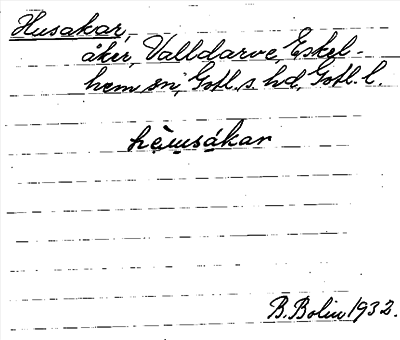 Husakar,
åker, Valldarve, Eskel-
hem sn, Gotl. s. hd, Gotl. l.
hèusákar
B. Bolin 1932.